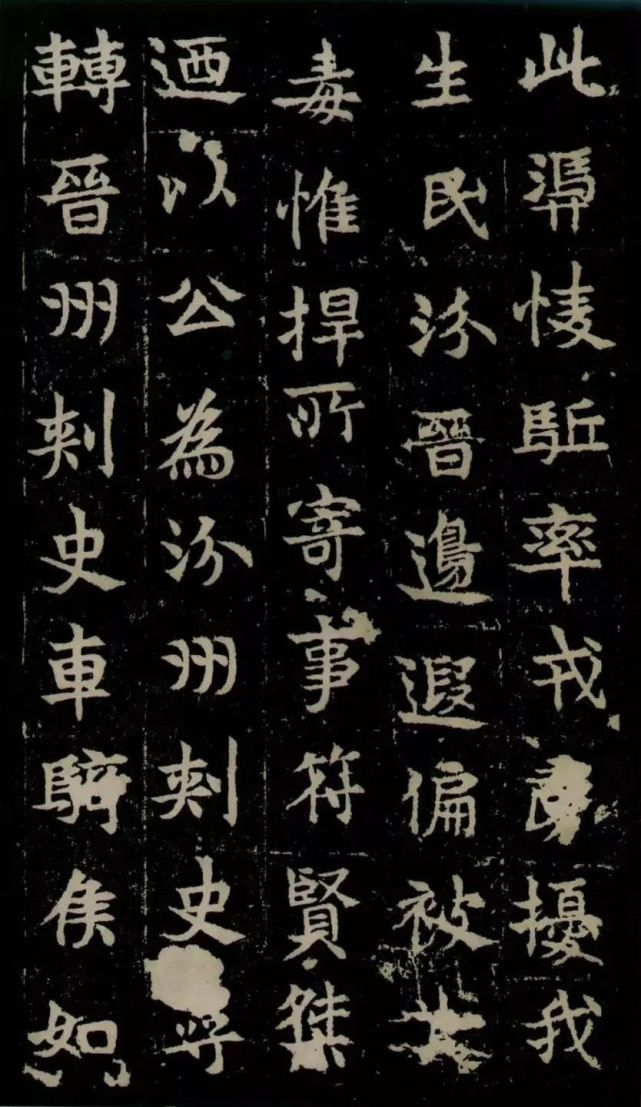 此㥄駈率戎擾我
生民汾晉邊遐偏被其
毒惟捍所寄事符賢桀
迺以公為汾州刾史
轉晉州刾史車騎侯如